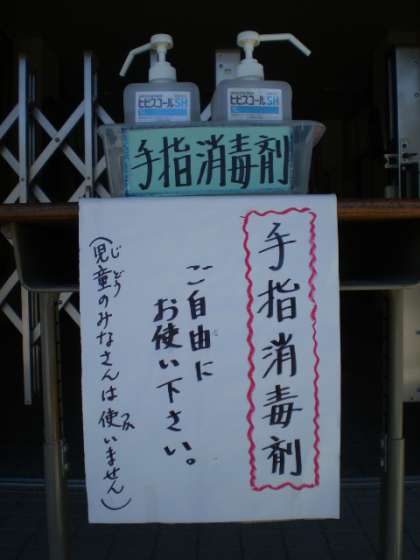 ヒビスコールSH
ヒビスコールSH
手指消毒剤
手指消毒剤
ご自由に
お使い下さい。
(児童のみなさんは使いません)
じどう
つか